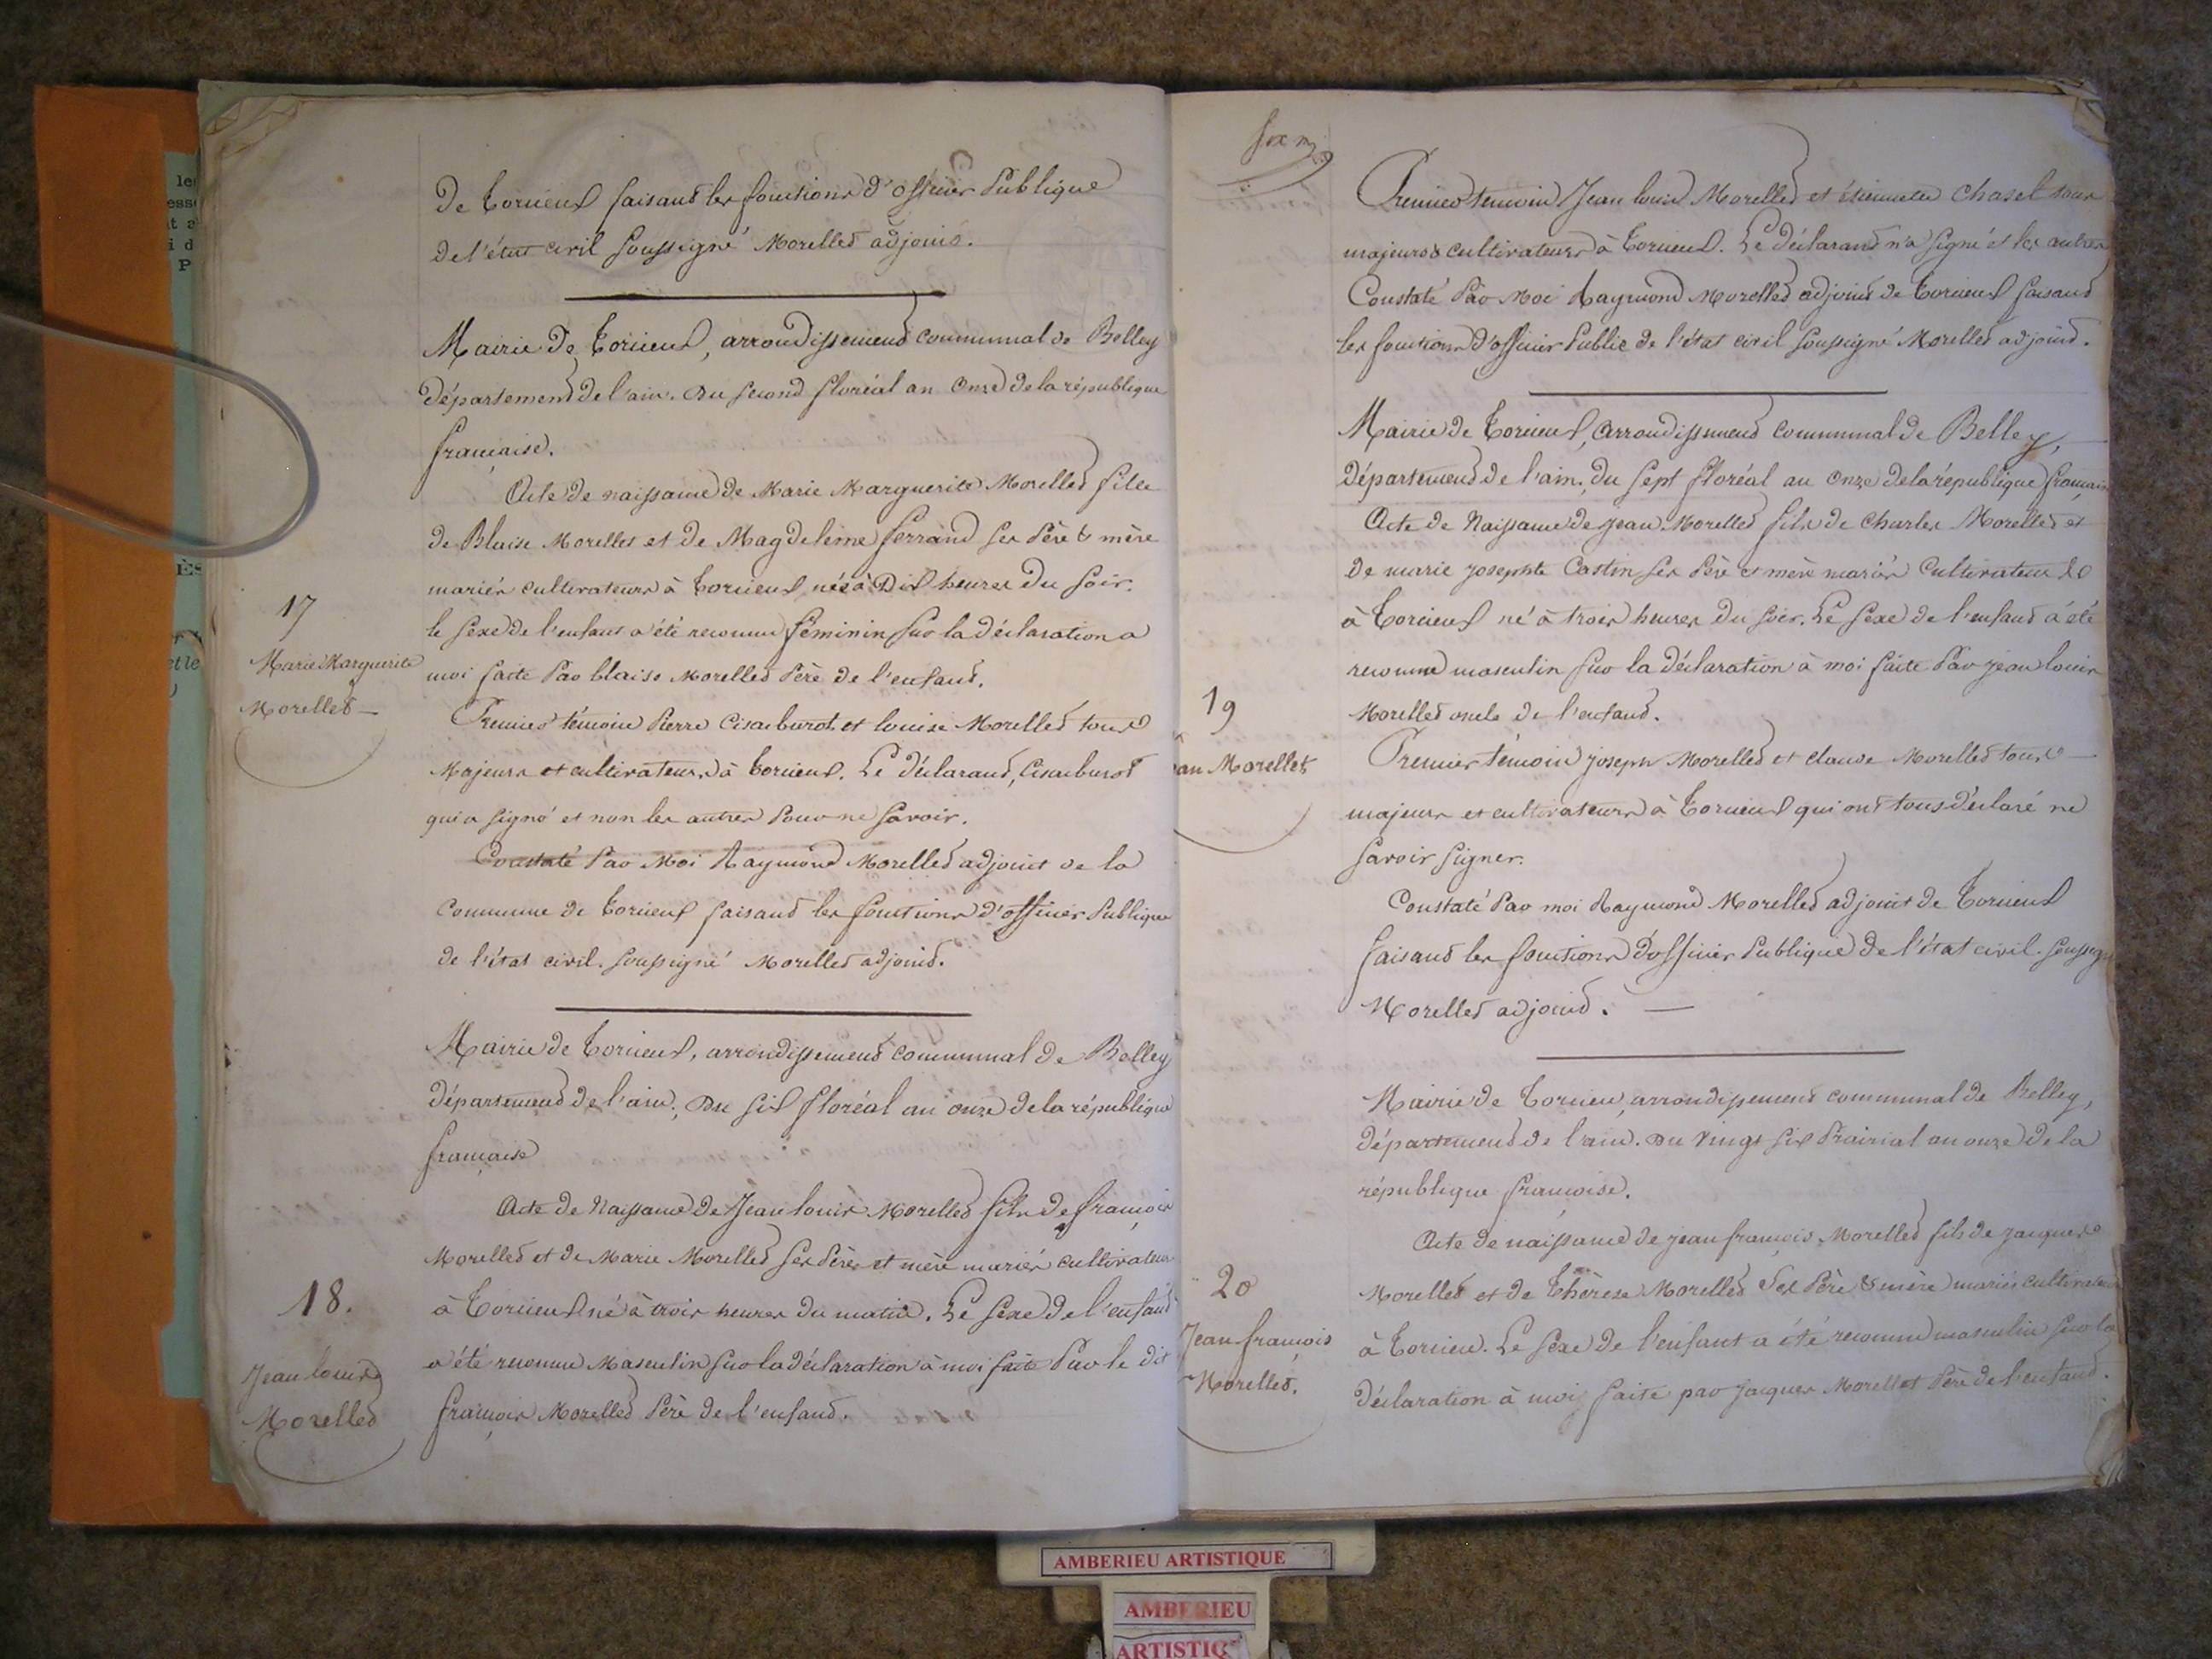 de torcieux faisant les fonctions d'officier Publique
de l'état civil soussigné Morellet adjoint.
Mairie de Torcieux, arrondissement communal de Belley
département de l'ain. Du second floréal an onze de la république
francaise.
Acte de naissance de Marie Marguerite Morellet fille
de Blaise Morellet et de Magdeleine ferrand ses Père & mère
mariés cultivateurs à torcieux née à Dix heures du soir.
17
le sexe de l'enfant a été reconnu féminin sur la déclaration a
Marie Marguerite
moi faite Par blaise Morellet Père de l'enfant.
Morellet
Premier témoin Pierre Cisaiburot et louise Morellet tous
Majeurs et cultivateurs à torcieux. Le déclarant, Cisaiburot
qui a signé et non les autres Pour ne savoir.
Constaté Par Moi Raymond Morellet adjoint de la
Commune de torcieux faisant les fonctions d'officier Publique
de l'état civil. soussigné Morellet adjoint.
Mairie de torcieux, arrondissement communal de Belley
département de l'ain. Du six floréal an onze de la république
francaise
Acte de Naissance de Jean louis Morellet fils de francois
Morellet et de Marie Morellet ses Père et mère mariés cultivateurs
18.
à Torcieux né à trois heures du matin. Le sexe de l'enfant
a été reconnu Masculin sur la déclaration à moi faite Par le dit
Jean louis
Morellet
francois Morellet Père de l'enfant.
Premier temoin Jean louis Morellet et étiennette Chasel tous
majeurs & cultivateurs à torcieux. Le déclarant n'a signé et les autres
Constaté Par Moi Raymond Morellet adjoint de torcieux faisant
les fonctions d'officier Public de l'état civil soussigné Morellet adjoint.
Mairie de Torcieux, arrondissement communal de Belley,
département de l'ain. du sept floréal an onze de la république francaise
Acte de Naissance de jean Morellet fils de charles Morellet et
de marie josephte Castin ses Père et mère mariés Cultivateurs
à torcieux né à trois heures du soir. Le sexe de l'enfant a été
reconnu masculin sur la déclaration à moi faite Par jean louis
19
Morellet oncle de l'enfant.
an Morellet
Premier témoin joseph Morellet et claude Morellet tous
majeurs et cultivateurs à torcieux qui ont tous déclaré ne
savoir signer.
Constaté Par moi Raymond Morellet adjoint de torcieux
faisant les fonctions d'officier Publique de l'état civil. soussigné
Morellet adjoint.
Mairie de torcieu, arrondissement communal de Belley,
département de l'ain. Du vingt six Prairial an onze de la
république francoise.
Acte de naissance de jean francois Morellet fils de jacques
20
Morellet et de thérèse Morellet ses Père & mère mariés cultivateurs
Jean francois
à torcieu. Le sexe de l'enfant a été reconnu masculin sur la
Morellet.
déclaration à moi faite par jacques Morellet Père de l'enfant.
AMBERIEU ARTISTIQUE
AMBERIEU
ARTISTIQ